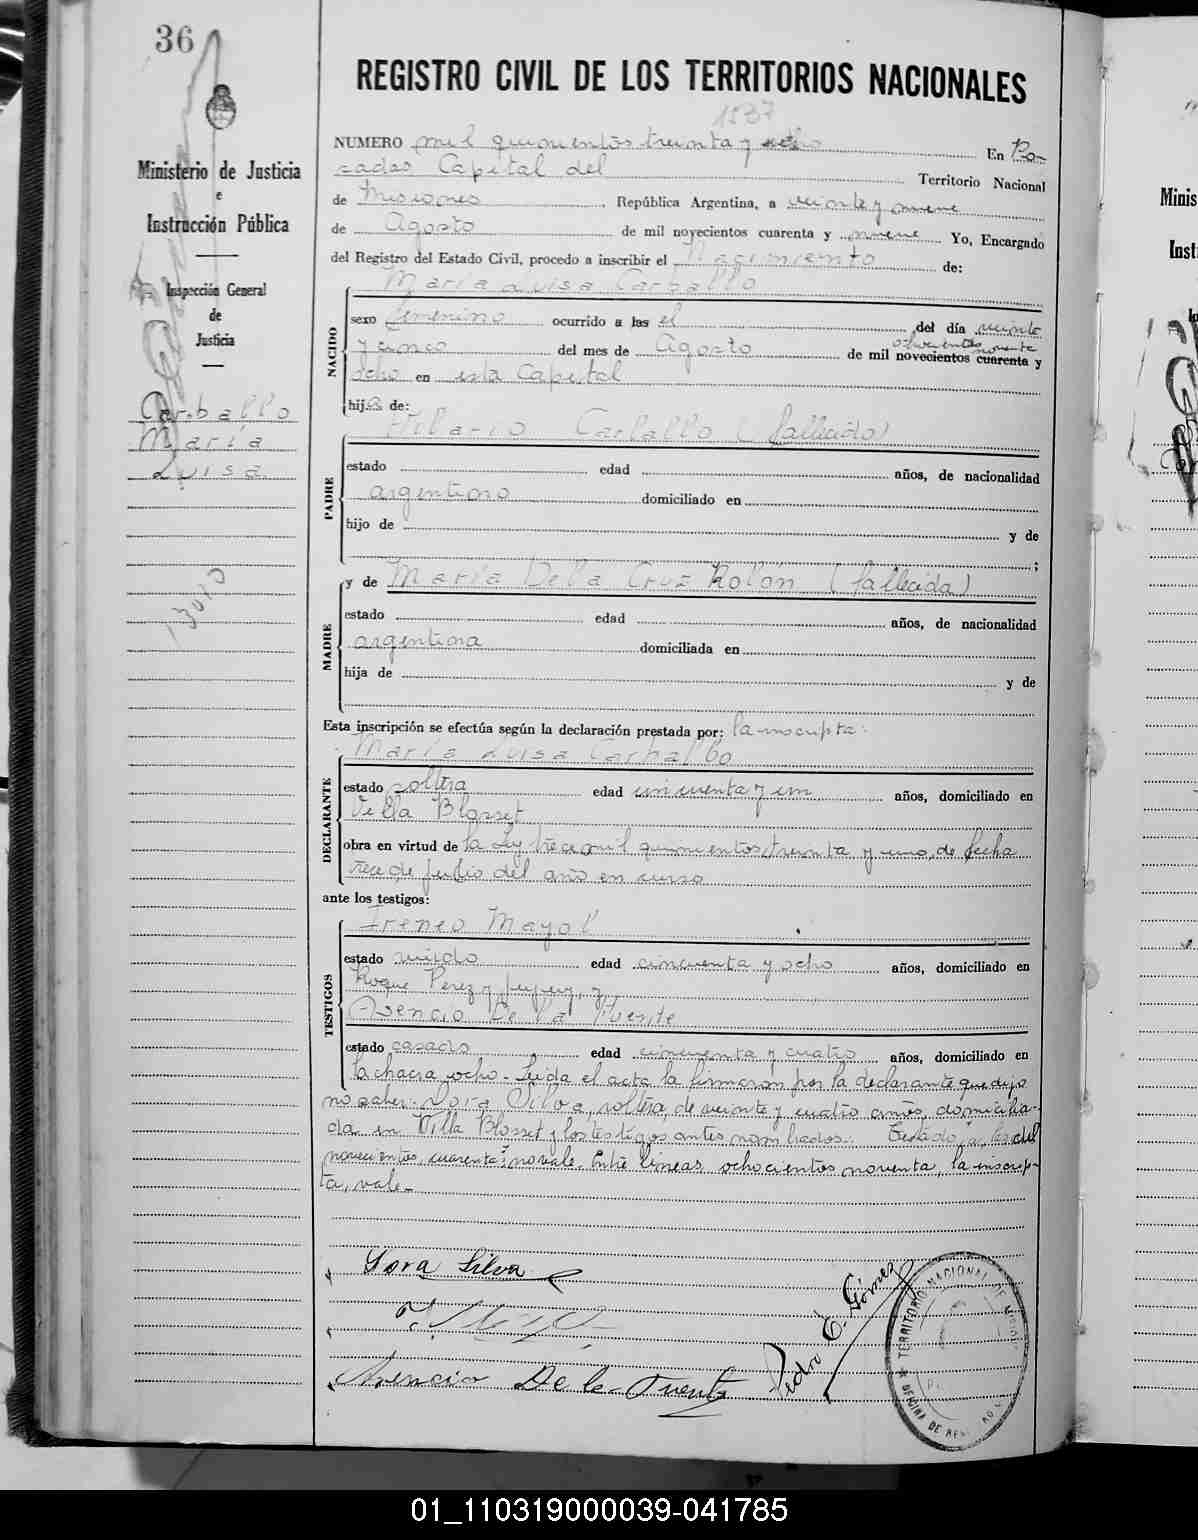 36
REGISTRO CIVIL DE LOS TERRITORIOS NACIONALES
1537
Ministerio de Justicia
e
Instrucción Pública
Inspección General
de
Justicia
Carballo
María
Luisa
NUMERO mil quinientos treinta y ocho En Po-
sadas Capital del Territorio Nacional
de Misiones República Argentina, a veinte y nueve
de Agosto de mil novecientos cuarenta y nueve Yo, Encargado
del Registro del Estado Civil, procedo a inscribir el Nacimiento de:
NACIDO
María Luisa Carballo
sexo femenino ocurrido a las el del día veinte
ochocientos noventa
y cinco del mes de Agosto de mil novecientos cuarenta y
ocho en esta Capital
hija de:
PADRE
Hilario Carballo (fallecido)
estado edad años, de nacionalidad
argentino domiciliado en
hijo de y de
;
MADRE
y de María De la Cruz Rolón (fallecida)
estado edad años, de nacionalidad
argentina domiciliada en
hija de y de
Esta inscripción se efectúa según la declaración prestada por: la inscripta.
DECLARANTE
María Luisa Carballo
estado soltera edad cincuenta y un años, domiciliado en
Villa Blosset
obra en virtud de la Ley trece mil quinientos treinta y uno, de fecha
trece de Julio del año en curso
ante los testigos:
TESTIGOS
Ireneo Mayol
estado viudo edad cincuenta y ocho años, domiciliado en
Roque Perez y Jujuy, y
Asencio De la Fuente
estado casado edad cincuenta y cuatro años, domiciliado en
la chacra ocho - Leida el acta la firmaron por la declarante que dijo
no saber. Dora Silva, soltera, de veinte y cuatro años, domicilia-
da en Villa Blosset y los testigos antes nombrados. Testado, a, las del
novecientos, cuarenta; no vale. Entre lineas ochocientos noventa, la inscrip-
ta, vale.-
Dora Silva
Asencio De la Fuente
Pedro E. Gómez
TERRITORIO NACIONAL DE MISIONES
OFICINA DE
01_110319000039-041785